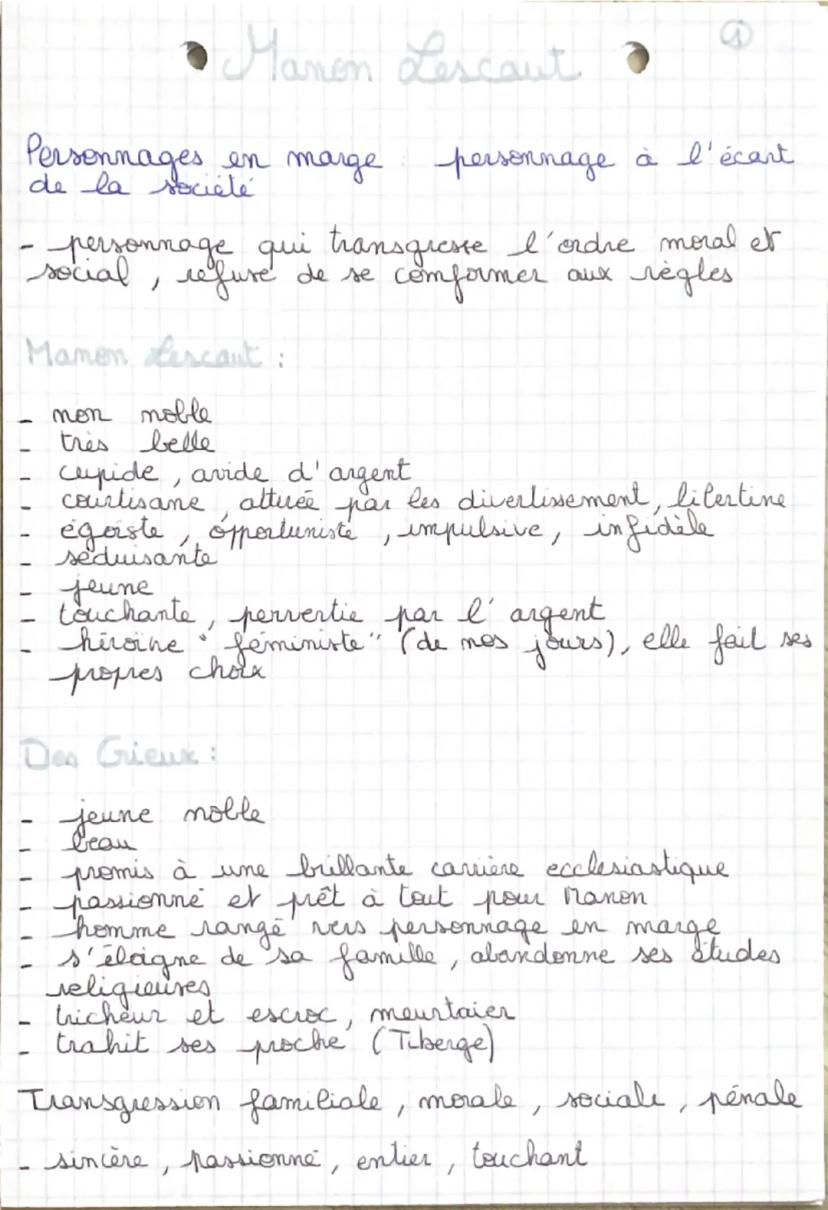 Manon Lescaut
1
Personnages en marge : personnage à l'écart
de la société
- personnage qui transgresse l'ordre moral et
social, refuse de se conformer aux règles
Manon Lescaut :
- non noble
- très belle
- cupide, avide d'argent
- courtisane, attirée par les divertissement, libertine
- égoïste, opportuniste, impulsive, infidèle
- séduisante
- jeune
- touchante, pervertie par l'argent
- héroïne "féministe" (de nos jours), elle fait ses
propres choix
Des Grieux :
- jeune noble
- beau
- promis à une brillante carrière ecclésiastique
- passionné et prêt à tout pour Manon
- homme rangé vers personnage en marge
- s'éloigne de sa famille, abandonne ses études
religieuses
- tricheur et escroc, meurtrier
- trahit ses proche (Tiberge)
Transgression familiale, morale, sociale, pénale
- sincère, passionné, entier, touchant